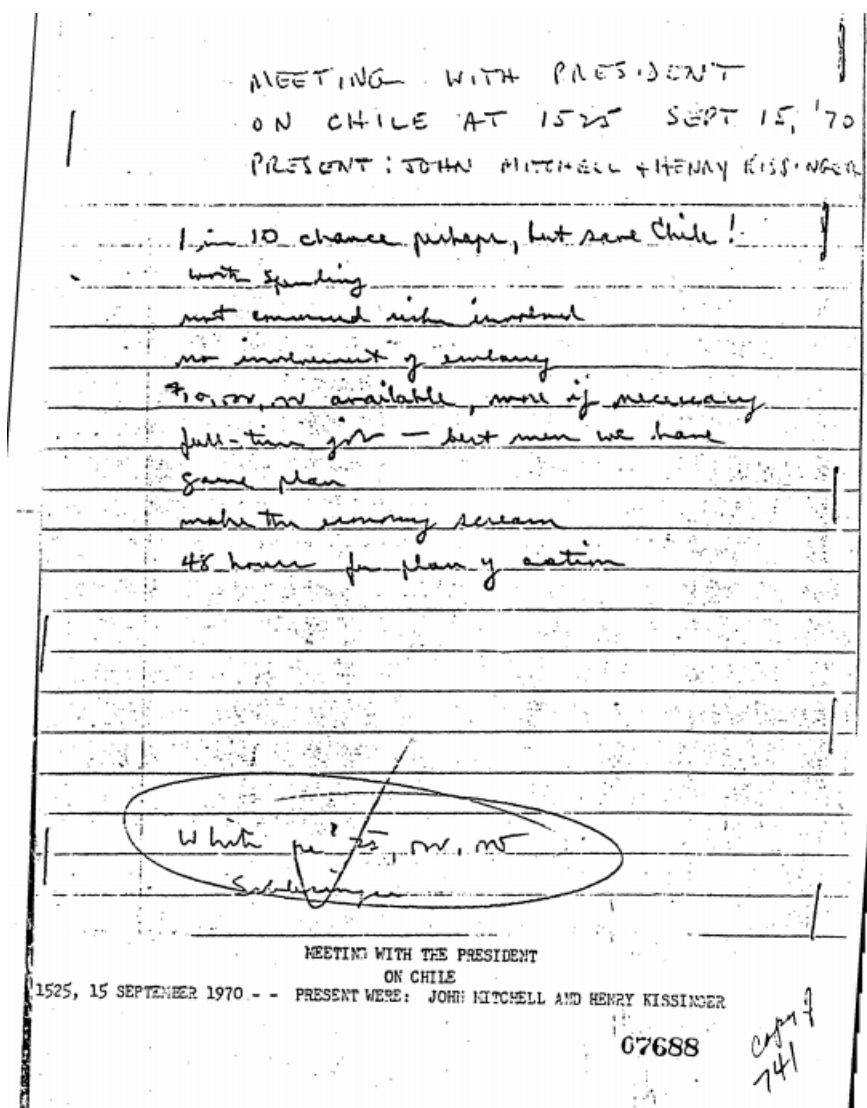 MEETING WITH PRESIDENT
ON CHILE AT 1525 SEPT 15, '70
PRESENT: JOHN MITCHELL + HENRY KISSINGER
1 in 10 chance perhaps, but save Chile!
worth spending
not concerned risks involved
no involvement of embassy
$10,000,000 available, more if necessary
full-time job — best men we have
game plan
make the economy scream
48 hours for plan of action
White
MEETING WITH THE PRESIDENT
ON CHILE
1525, 15 SEPTEMBER 1970 - - PRESENT WERE: JOHN MITCHELL AND HENRY KISSINGER
07688
741